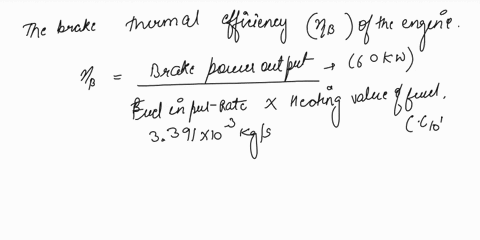 The brake thermal efficiency (ηB) of the engine.
ηB = Brake power output → (60 kW)
Fuel input-Rate × Heating value of fuel.
3.391×10⁻³ kg/s (C10'